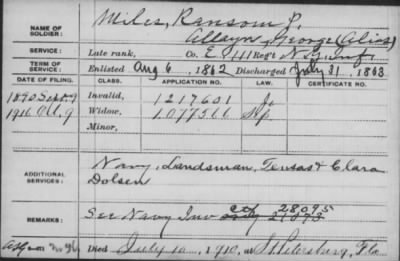 NAME OF SOLDIER: Miles, Ransom P.
Allayn, George (Alias)
SERVICE: Late rank, Co. E, 111 Reg't N.Y. Inf.
TERM OF SERVICE: Enlisted Aug 6, 1862 Discharged July 31, 1863
DATE OF FILING. CLASS. APPLICATION NO. LAW. CERTIFICATE NO.
1890 Sept. 9 Invalid, 1217601
1916 Oct. 9 Widow, 1.077566
Minor,
ADDITIONAL SERVICES: Navy, Landsman, Tensas & Clara
Dolsen
REMARKS: See Navy Inv ctf 28095
Died July 10, 1910, at St. Petersburg, Fla